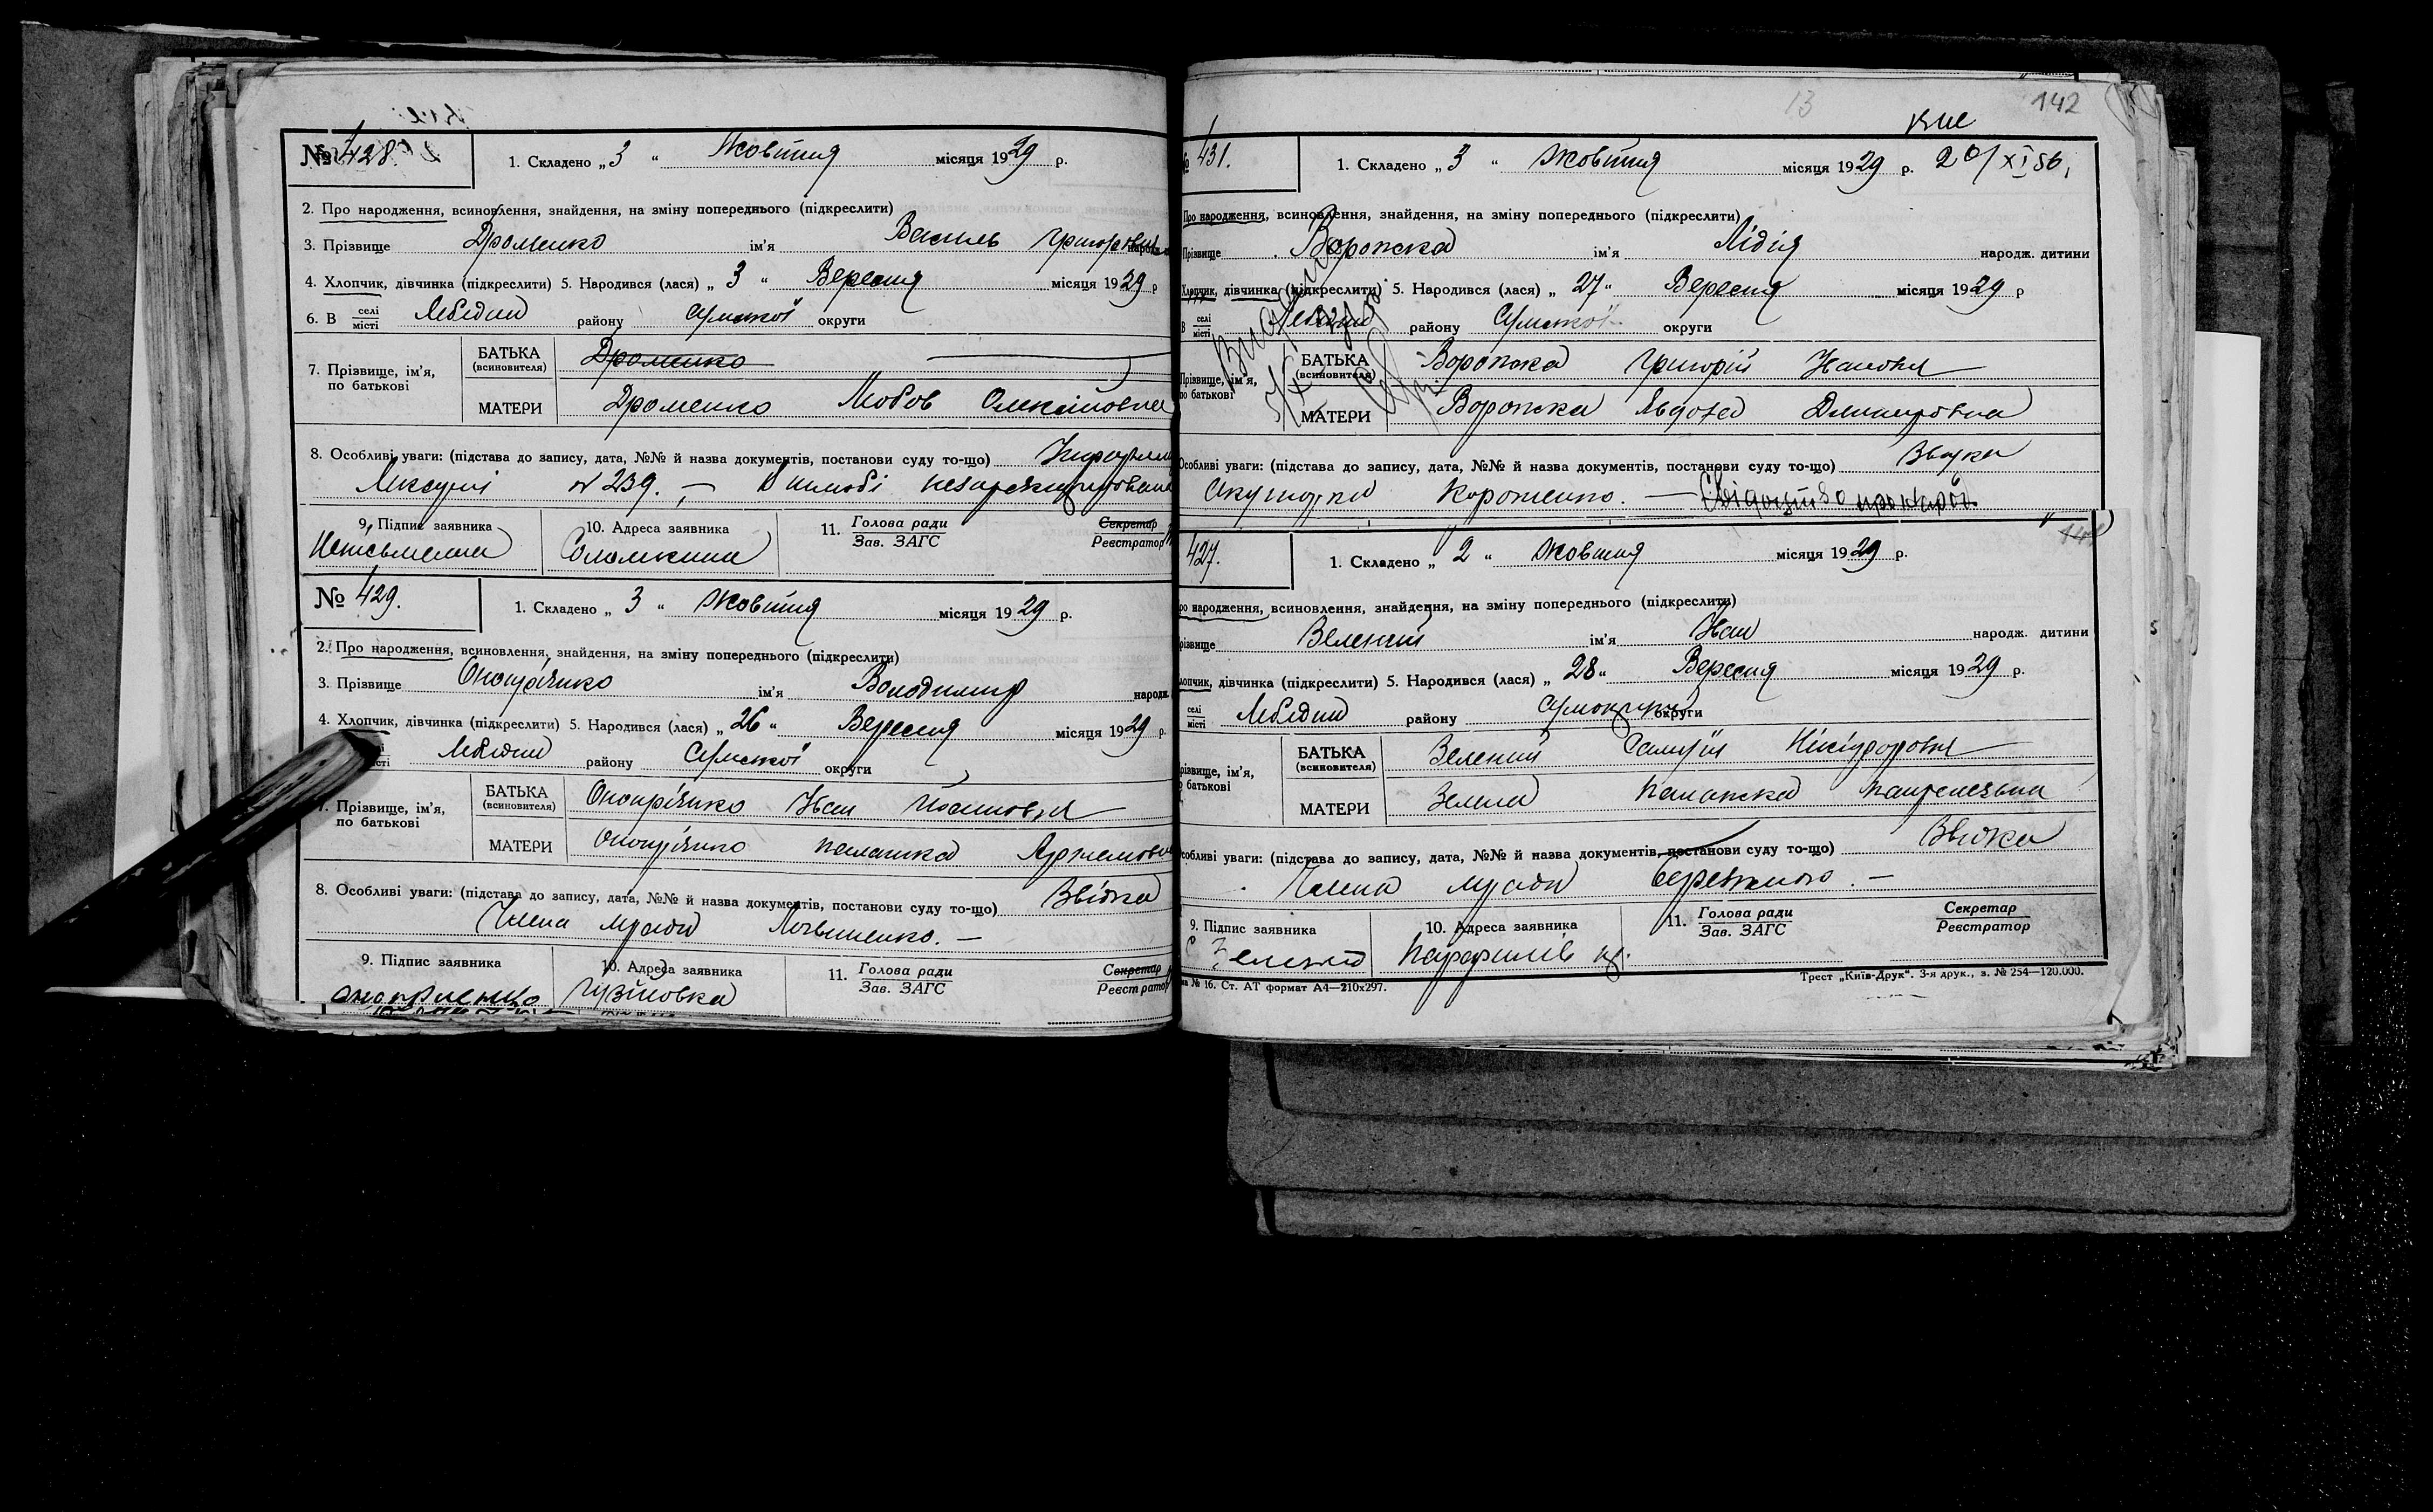 № 428
1. Складено „ 3 “ Жовтня місяця 19 29 р.
2. Про народження, всиновлення, знайдення, на зміну попереднього (підкреслити)
3. Прізвище Дроменко ім’я Василь Григорович
4. Хлопчик, дівчинка (підкреслити) 5. Народився (лася) „ 3 “ Вересня місяця 19 29 р
6. В селі місті Лебедин району Сумської округи
7. Прізвище, ім’я, по батькові
БАТЬКА (всиновителя) Дроменко
МАТЕРИ Дроменко Любов Олексіїовна
8. Особливі уваги: (підстава до запису, дата, №№ й назва документів, постанови суду то-що)
№ 239. — В шлюбі
9. Підпис заявника 10. Адреса заявника 11. Голова ради Зав. ЗАГС Секретар Реєстратор
Неписьменна
№ 429.
1. Складено „ 3 “ Жовтня місяця 19 29 р.
2. Про народження, всиновлення, знайдення, на зміну попереднього (підкреслити)
3. Прізвище Онопрієнко ім’я Володимир народж.
4. Хлопчик, дівчинка (підкреслити) 5. Народився (лася) „ 26 “ Вересня місяця 19 29 р.
Лебедин району Сумської округи
7. Прізвище, ім’я, по батькові
БАТЬКА (всиновителя) Онопрієнко Іван
МАТЕРИ Онопрієнко Палажка
8. Особливі уваги: (підстава до запису, дата, №№ й назва документів, постанови суду то-що) Звістка
Члена Логвиненко. —
9. Підпис заявника 10. Адреса заявника 11. Голова ради Зав. ЗАГС Секретар Реєстратор
оноприенко
13
142
№ 431.
1. Складено „ 3 “ Жовтня місяця 19 29 р. 20/XI 56
Про народження, всиновлення, знайдення, на зміну попереднього (підкреслити)
Прізвище ім’я Лідія народж. дитини
Хлопчик, дівчинка (підкреслити) 5. Народився (лася) „ 27 “ Вересня місяця 19 29 р
В селі місті району Сумської округи
Прізвище, ім’я, по батькові
БАТЬКА (всиновителя) Григорій Іванович
МАТЕРИ Явдоха Дмитровна
Особливі уваги: (підстава до запису, дата, №№ й назва документів, постанови суду то-що)
Акушерки Короженко. —
427.
1. Складено „ 2 “ Жовтня місяця 19 29 р.
Про народження, всиновлення, знайдення, на зміну попереднього (підкреслити)
Прізвище Зелений ім’я Іван народж. дитини
Хлопчик, дівчинка (підкреслити) 5. Народився (лася) „ 28 “ Вересня місяця 19 29 р.
селі місті Лебедин району округи
Прізвище, ім’я, по батькові
БАТЬКА (всиновителя) Зелений Нікіфорович
МАТЕРИ Зелена Палажка
Особливі уваги: (підстава до запису, дата, №№ й назва документів, постанови суду то-що) Звістка
Члена Бережного. —
9. Підпис заявника 10. Адреса заявника 11. Голова ради Зав. ЗАГС Секретар Реєстратор
№ 16. Ст. АТ формат А4—210х297. Трест „Київ-Друк“. 3-я друк., з. № 254—120.000.